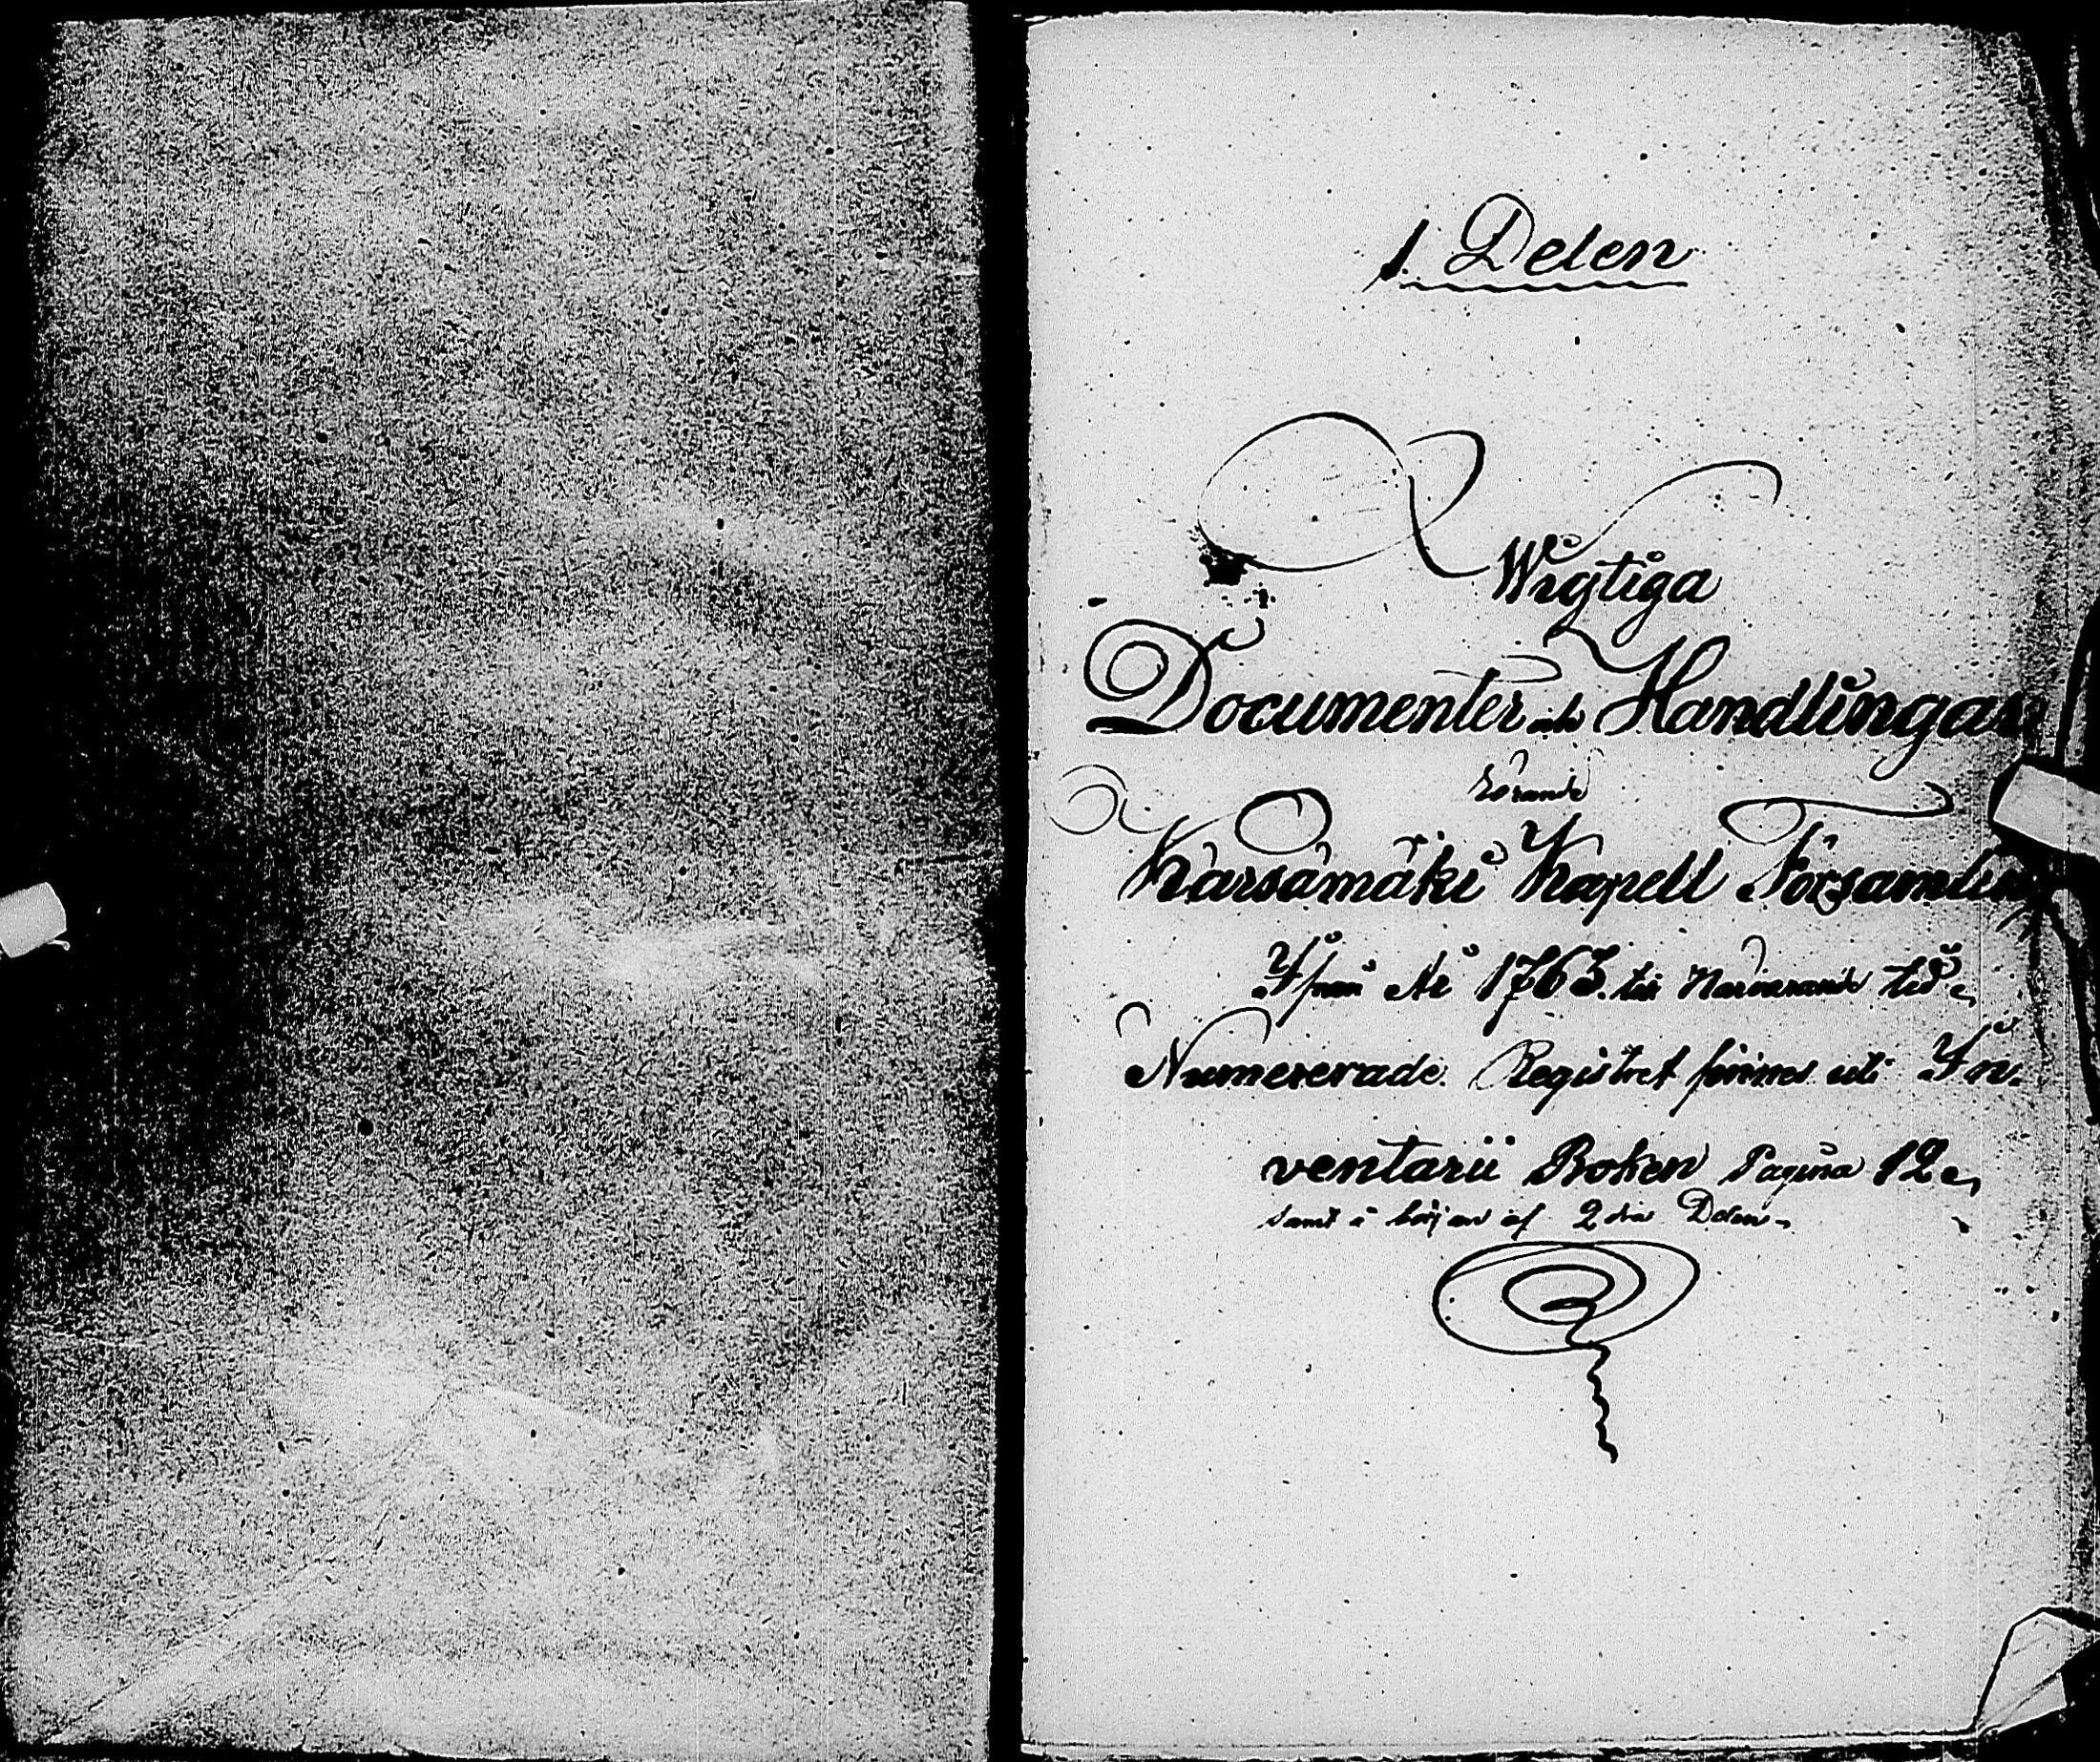 1. Delen
Wigtiga
Documenter och Handlingar
rörande
Kärsämäki Kapell Församling
Ifrån År 1763. till Närvarande tid.
Numererade. Registret finnes uti In-
ventarii Boken Pagina 12.
samt i början af 2dra Delen.